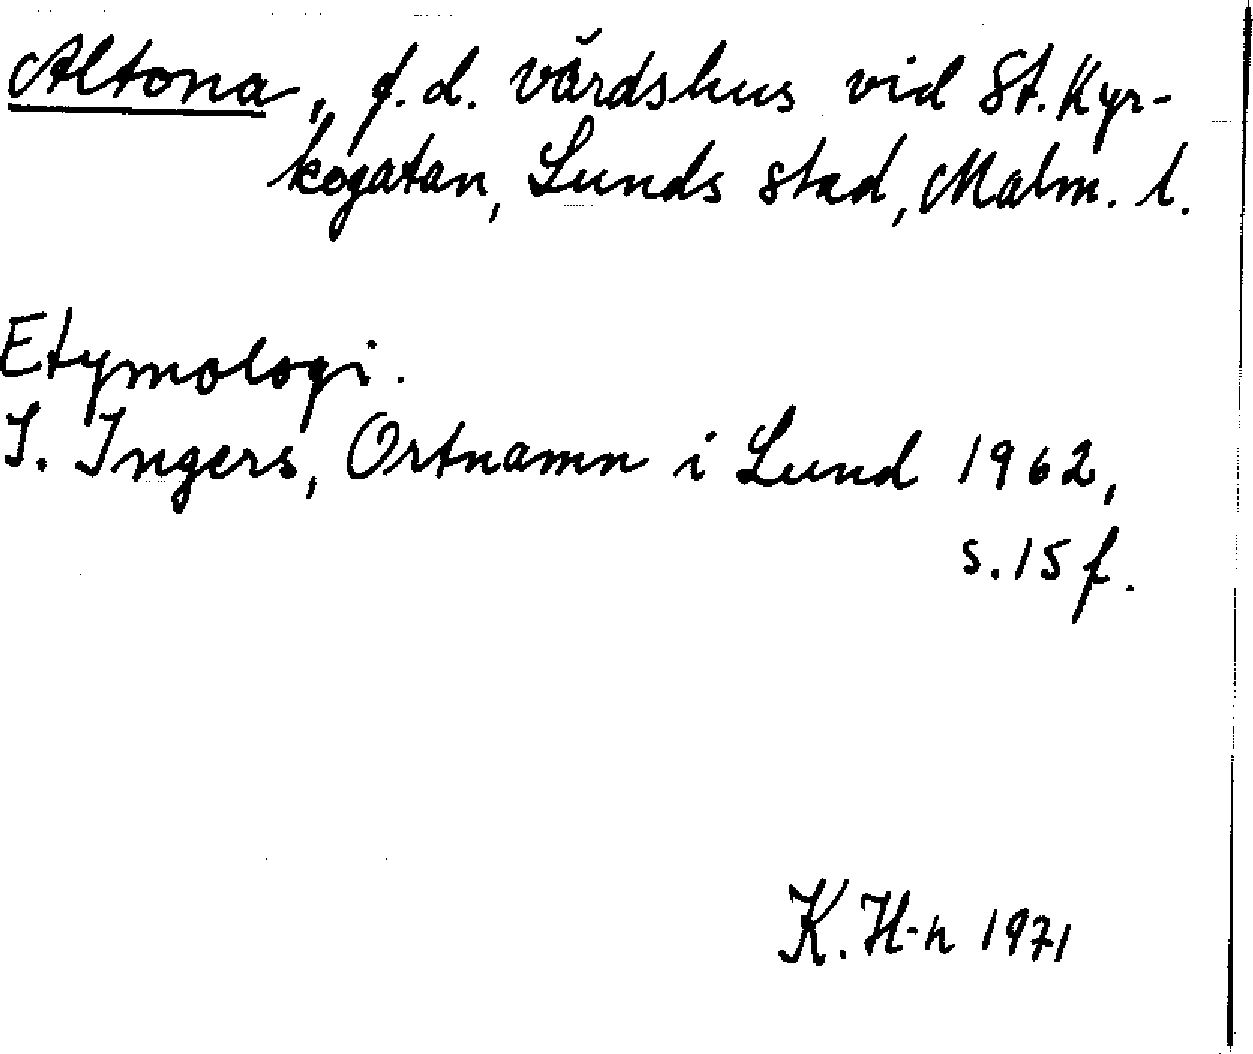 Altona, f.d. värdshus vid St. Kyr-
kogatan, Lunds stad, Malm. l.
Etymologi.
I. Ingers, Ortnamn i Lund 1962,
s. 15 f.
K. H-n 1971